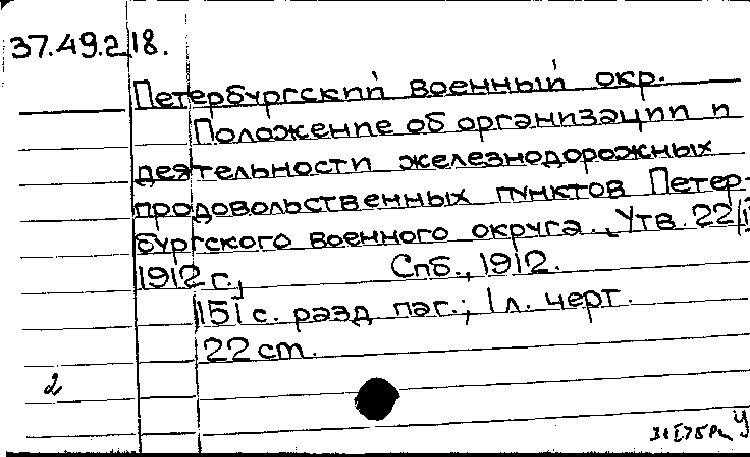 37.49.2.18.
Петербургский военный окр.
Положение об организации и
деятельности железнодорожных
продовольственных пунктов Петер-
бургского военного округа. [Утв. 22/I
1912 г.] Спб., 1912.
151 с. разд паг.; 1 л. черт.
22 cm.
2